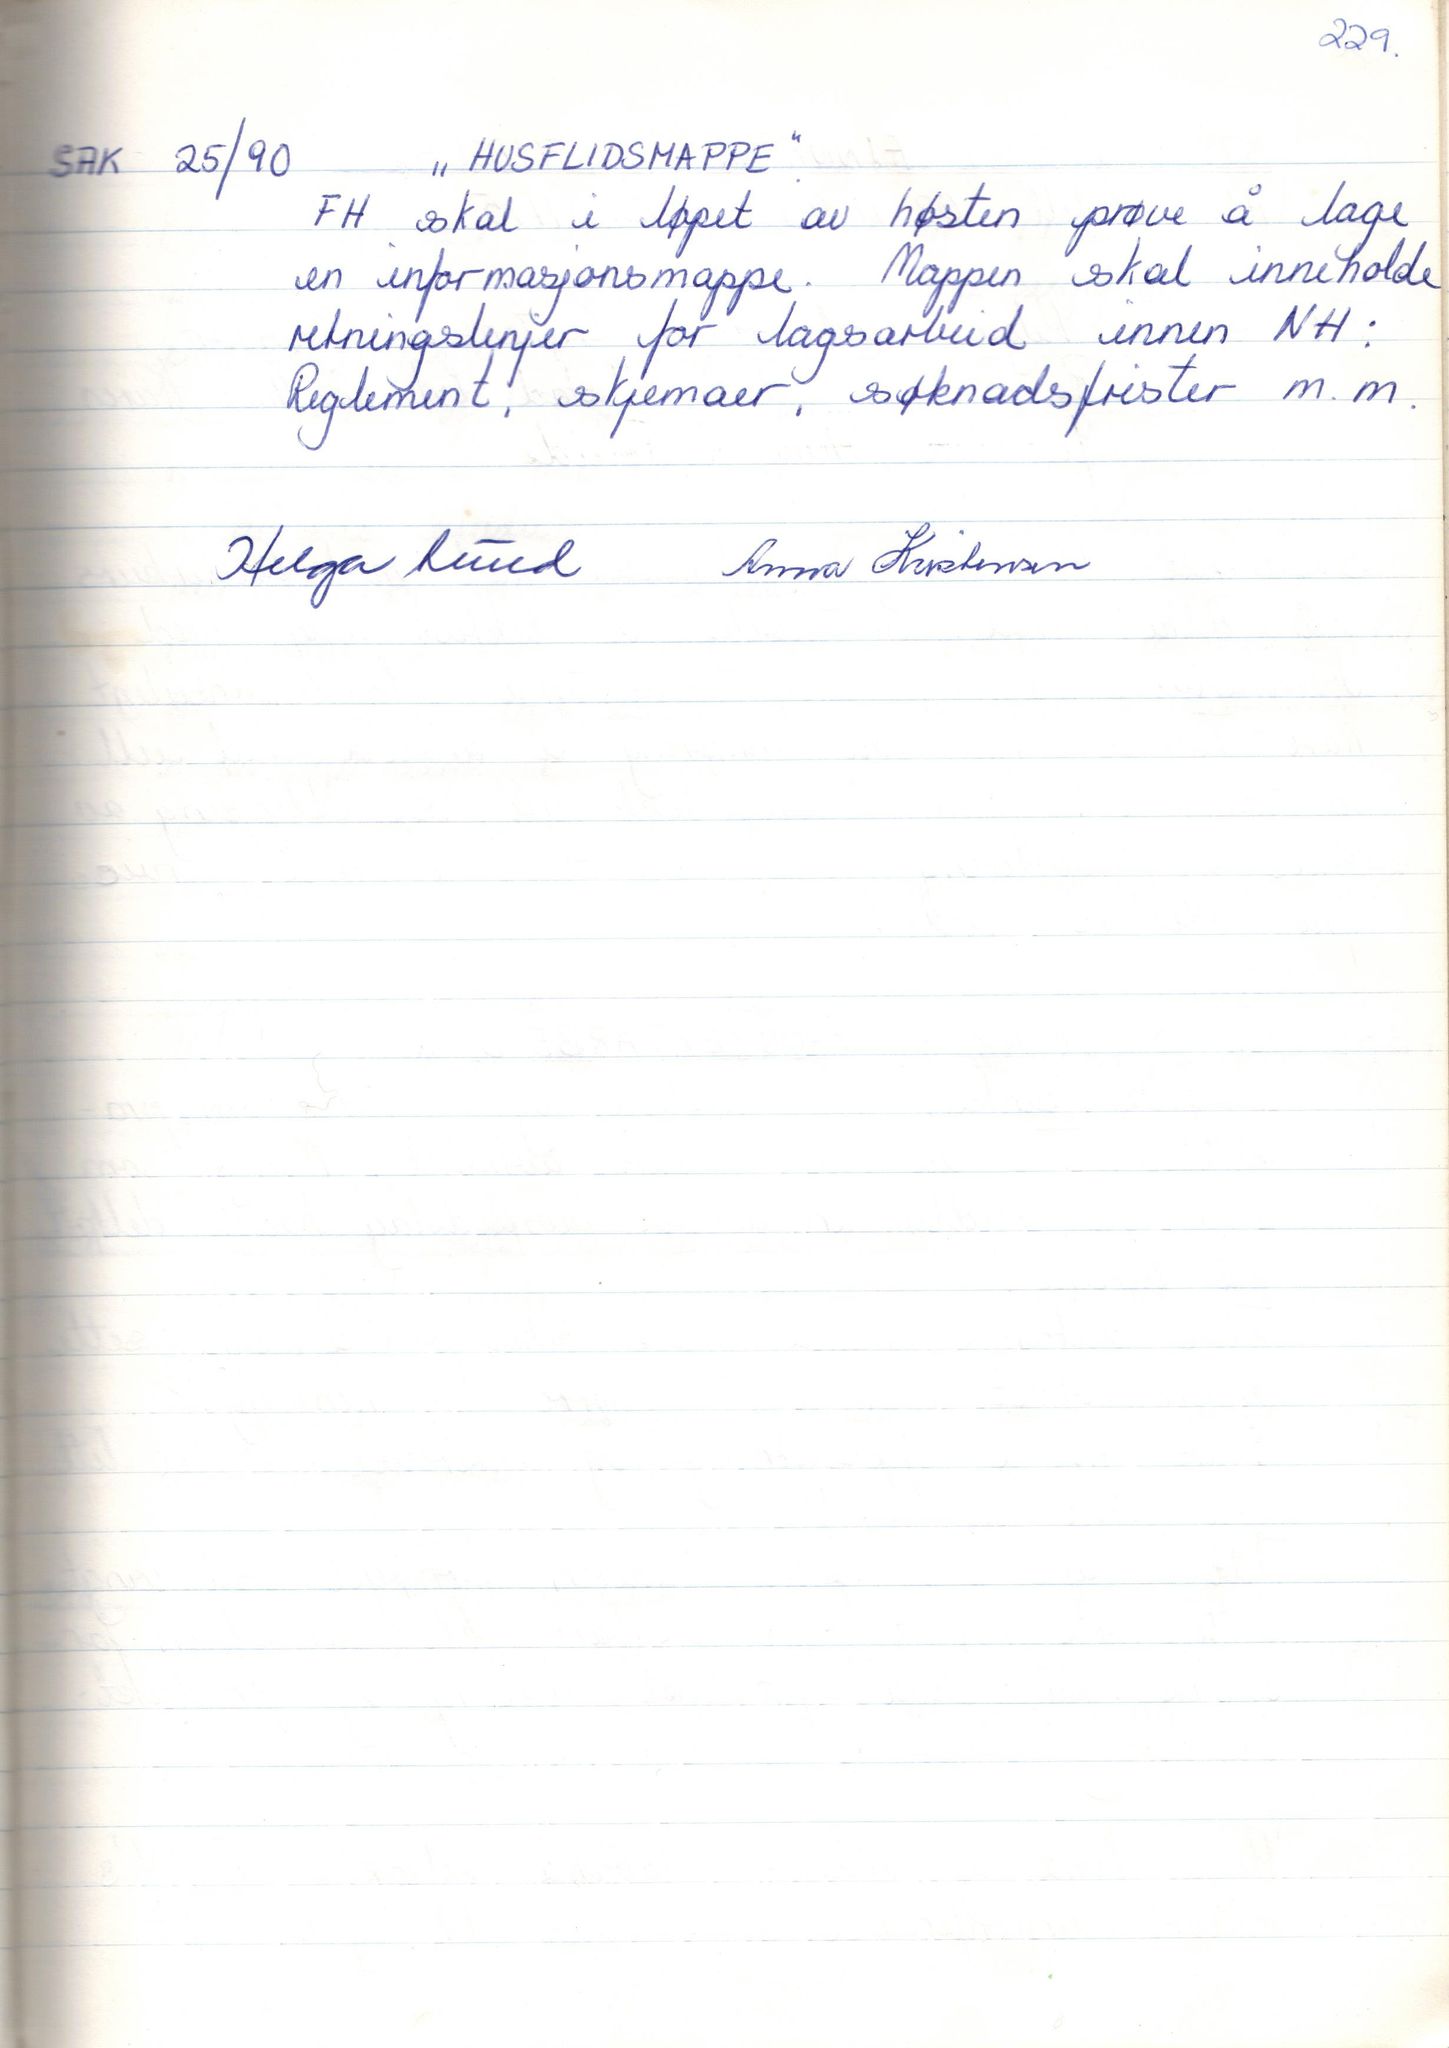 229.
SAK 25/90 „HUSFLIDSMAPPE".
FH skal i løpet av høsten prøve å lage
en informasjonsmappe. Mappen skal inneholde
retningslinjer for lagsarbeid innen NH:
Reglement, skjemaer, søknadsfrister m.m.
Helga Anna Kristensen